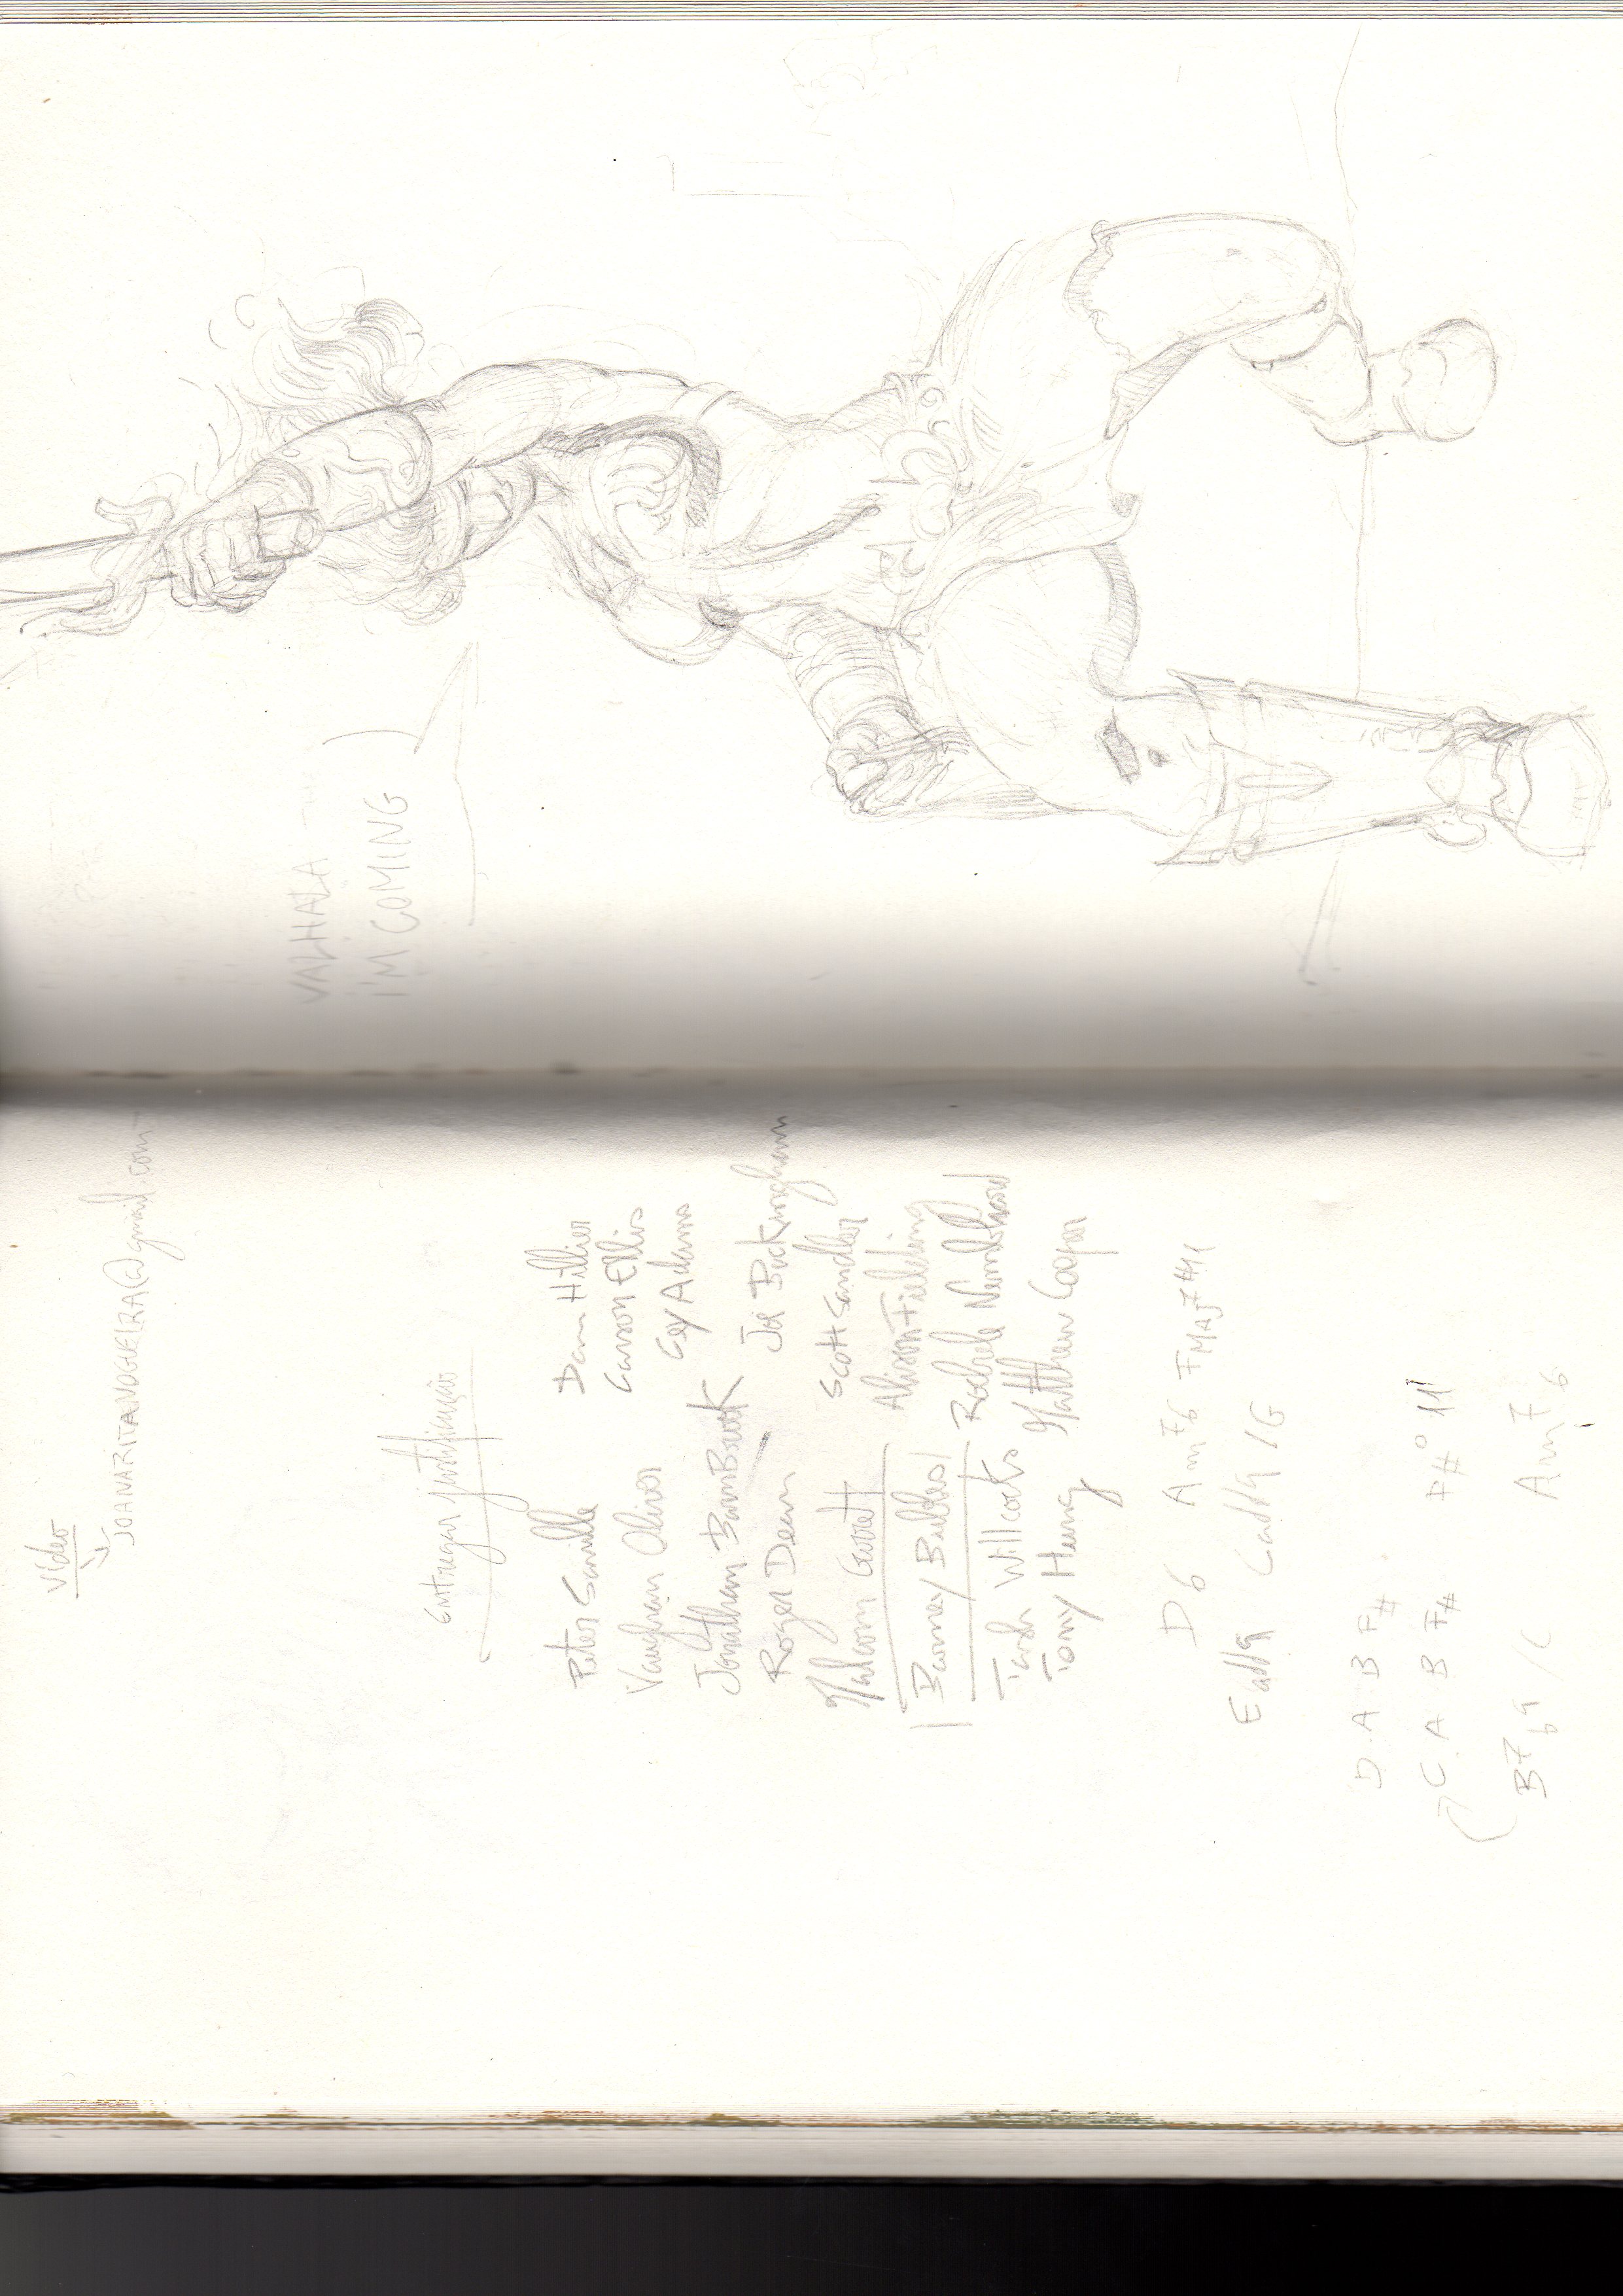 Vídeo
JOANARITANOGUEIRA@gmail.com
Entregar justificação
Peter Saville
Vaughan Oliver
Jonathan BarnBrook
Roger Dean
Malcom Garrett
Barney Bubbles
Tash Willcocks
Tony Hung
Dan Hillier
Carson Ellis
Cey Adams
Joe Buckingham
Scott Sandler
Alison Fielding
Rochele Nembhard
Matthew Cooper
D6 Am76 FMAJ7#11
Eadd9 Cadd9/G
D A B F#
C A B F# D#° 11
B7 6 9 /C Am7 6
VALHALA
I'M COMING